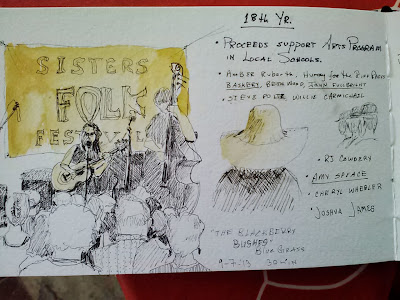 SISTERS
FOLK
FESTIVAL
18th YR.
• PROCEEDS SUPPORT ARTS PROGRAM
IN LOCAL SCHOOLS.
• AMBER RUBARTH, HURRAY FOR THE RIFF RAFF
BASKERY, BROTH WOOD, JOHN FULLBRIGHT
• STEVE POLTZ WILLIE CARMICHAEL
• RJ COWDERY
• AMY SPEACE
• CHERYL WHEELER
• JOSHUA JAMES
"THE BLACKBERRY
BUSHES"
BLUE GRASS
9-7-13